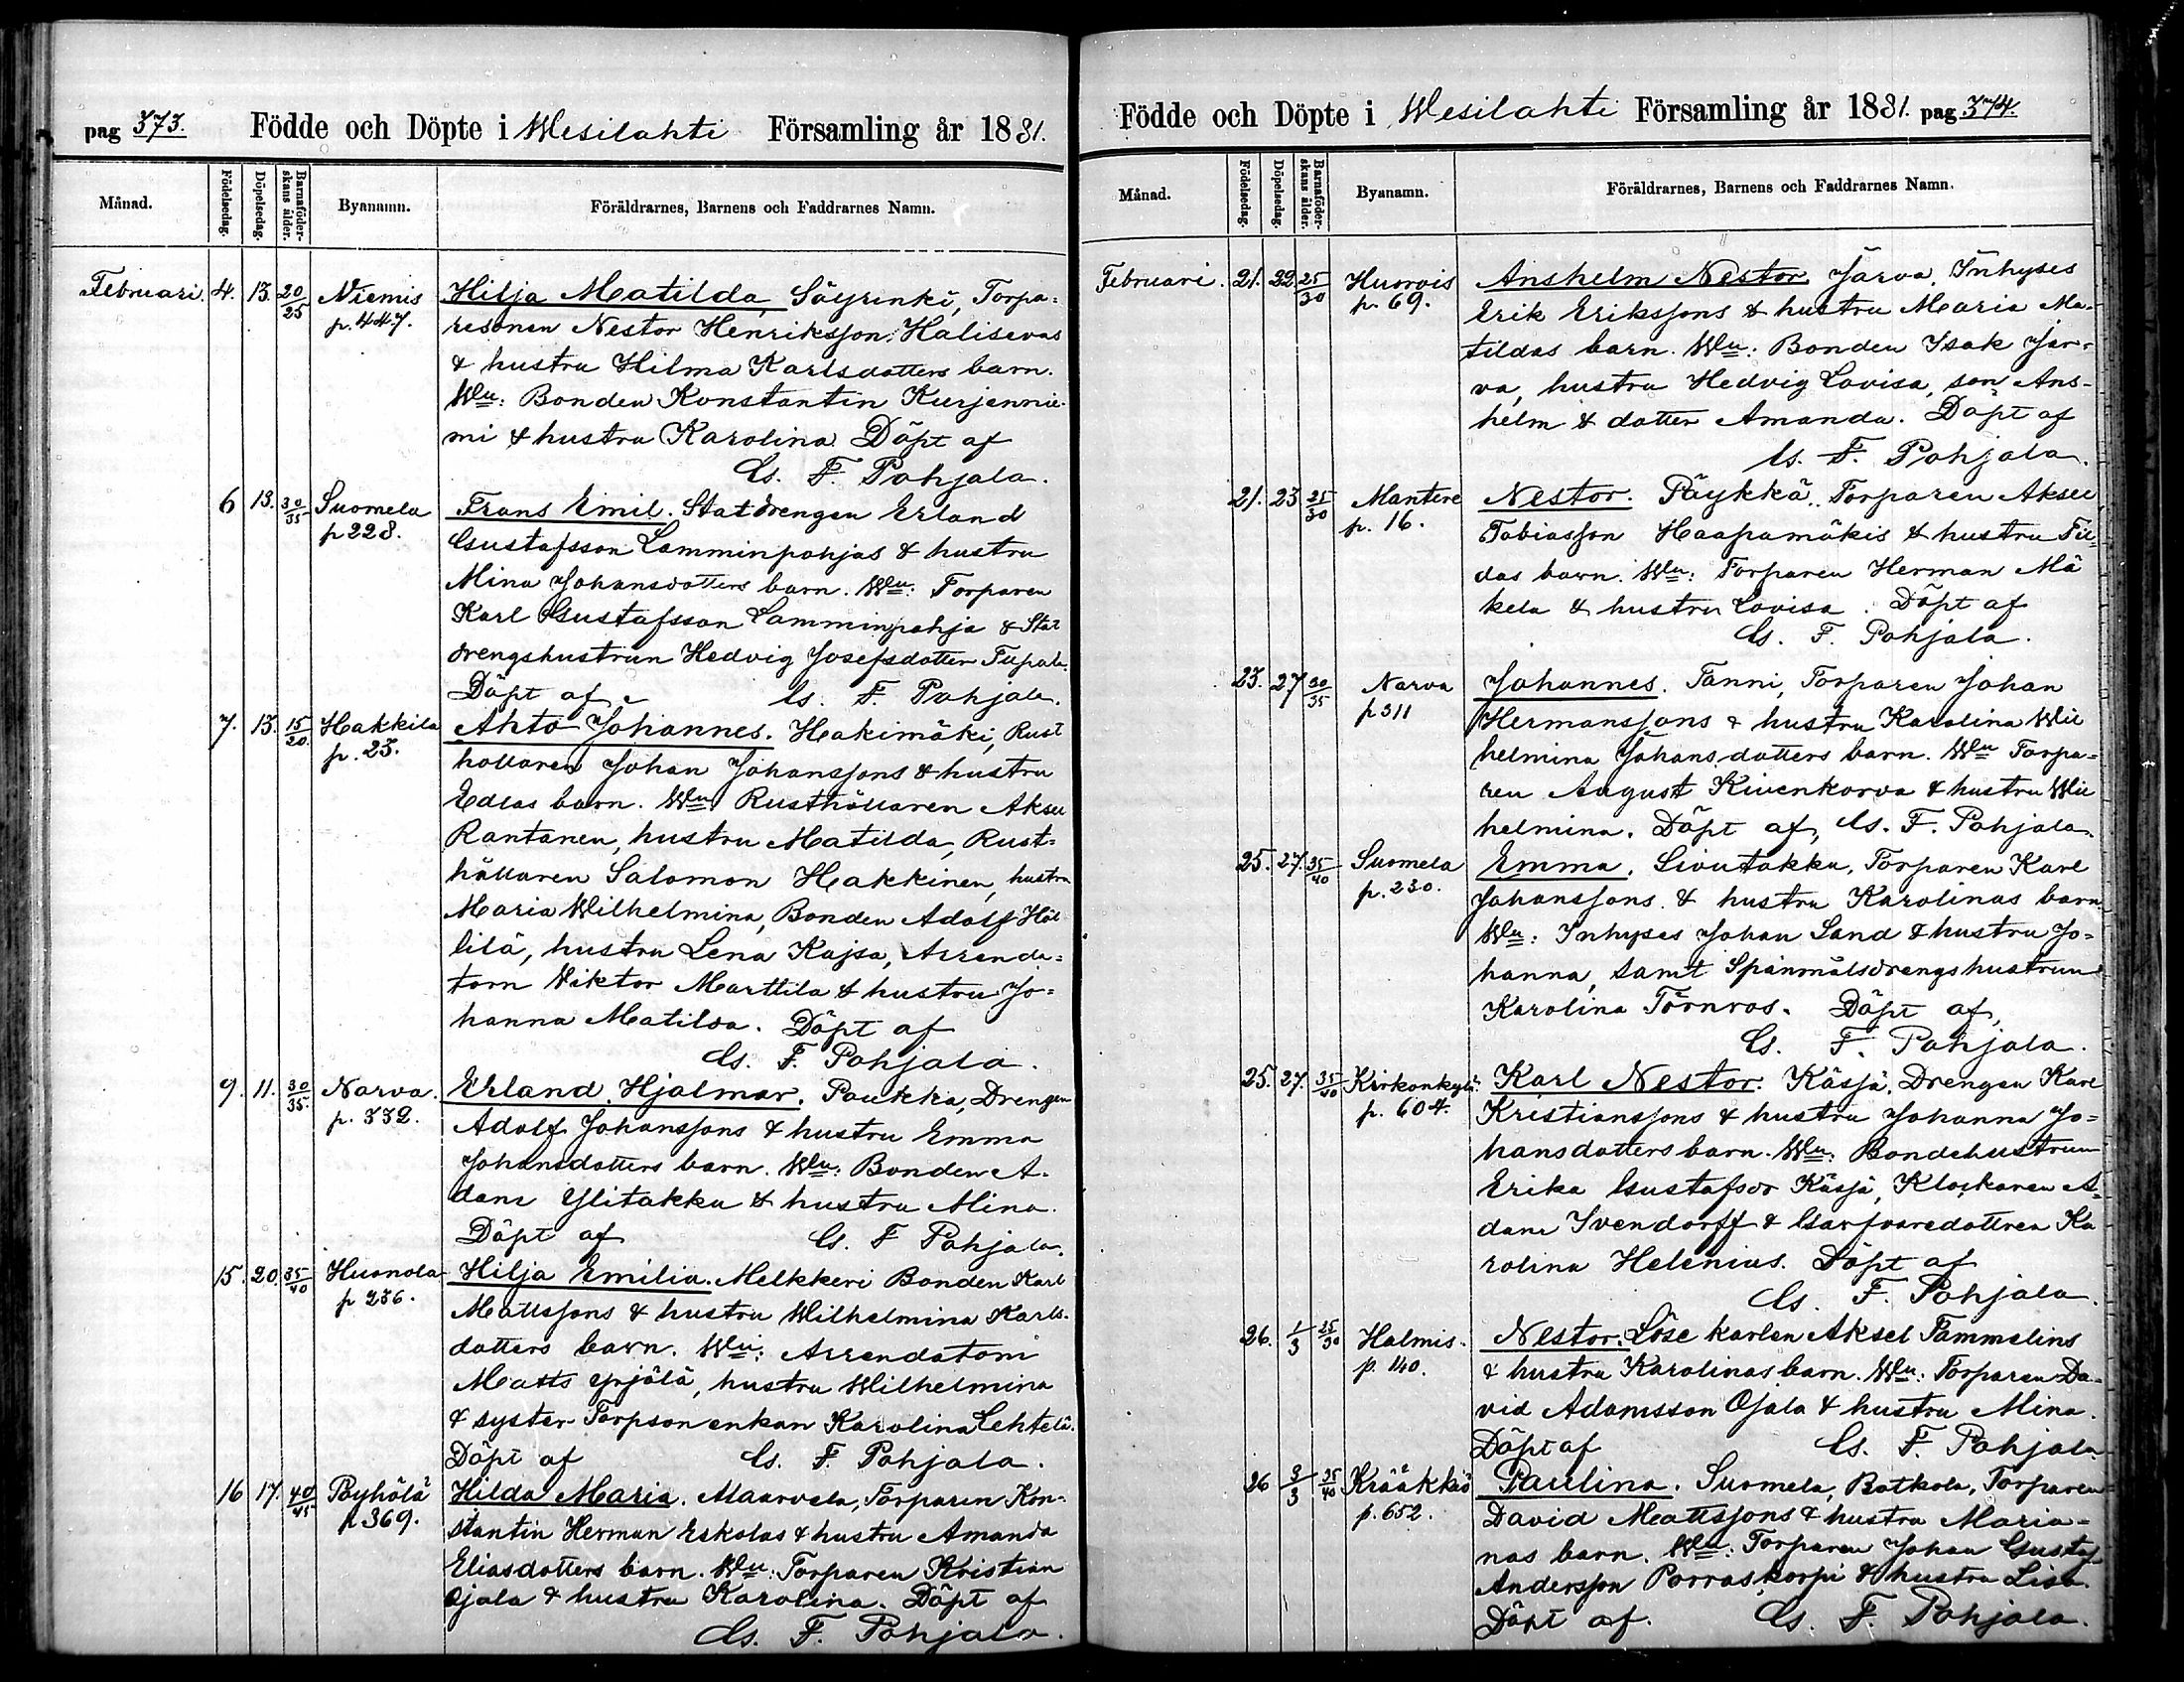 pag 373. Födde och Döpte i Wesilahti Församling år 1881.
Månad. Födelsedag. Döpelsedag. Barnaföderskans ålder. Byanamn. Föräldrarnes, Barnens och Faddrarnes Namn.
Februari. 4. 13. 20/25 Niemis Hilja Matilda, Säyrinki, Torpa=
p. 447. resonen Nestor Henriksson Halisevas
& hustru Hilma Karlsdotters barn.
Wn: Bonden Konstantin Kurjennie-
mi & hustru Karolina Döpt af
Gs. F. Pohjala.
6 13. 30/35 Suomela Frans Emil. Statdrengen Erland
p 228. Gustafsson Lamminpohjas & hustru
Mina Johansdotters barn. Wn: Torparen
Karl Gustafsson Lamminpohja & Stat
drengshustrun Hedvig Josefsdotter Tupala.
Döpt af Gs. F. Pohjala.
7. 13. 15/20. Hakkila Ahto Johannes. Hakimäki, Rust
p. 23. hållaren Johan Johanssons & hustru
Edlas barn. Wn Rusthållaren Aksel
Rantanen, hustru Matilda, Rust-
hållaren Salomon Hakkinen, hustru
Maria Wilhelmina, Bonden Adolf Häl
lilä, hustru Lena Kajsa, Arrenda=
torn Viktor Marttila & hustru Jo=
hanna Matilda. Döpt af
Gs. F. Pohjala.
9. 11. 30/35. Narva. Erland Hjalmar. Paukka, Drengen
p. 332. Adolf Johanssons & hustru Emma
Johansdotters barn. Wn: Bonden A-
dam Ylitakku & hustru Mina.
Döpt af Gs. F Pohjala.
15. 20. 35/40 Huonola Hilja Emilia. Melkkeri Bonden Karl
p 236. Mattssons & hustru Wilhelmina Karls-
dotters barn. Wn: Arrendatorn
Matts Yrjölä, hustru Wilhelmina
& syster Torpson enkan Karolina Lehtelä.
Döpt af Gs. F. Pohjala.
16 17. 40/45 Pöyhölä Hilda Maria. Maarvela, Torparen Kon-
p 369. stantin Herman Eskolas & hustru Amanda
Eliasdotters barn. Wn: Torparen Kristian
Ojala & hustru Karolina. Döpt af
Gs. F. Pohjala.
Födde och Döpte i Wesilahti Församling år 1881. pag 374.
Månad. Födelsedag. Döpelsedag. Barnaföderskans ålder. Byanamn. Föräldrarnes, Barnens och Faddrarnes Namn.
Februari. 21. 22 25/30 Huovis Anshelm Nestor Järva, Inhyses
p. 69. Erik Erikssons & hustru Maria Ma-
tildas barn. Wn: Bonden Isak Jär-
va, hustru Hedvig Lovisa, son Ans-
helm & dotter Amanda. Döpt af
Gs. F. Pohjala.
21. 23 25/30 Mantere Nestor. Päykkä. Torparen Aksel
p. 16. Tobiasson Haapamäkis & hustru Fii-
das barn. Wn: Torparen Herman Mä
kela & hustru Lovisa. Döpt af
Gs. F. Pohjala.
23. 27 30/35 Narva Johannes. Tanni, Torparen Johan
p 311 Hermanssons & hustru Karolina Wil
helmina Johansdotters barn. Wn Torpa=
ren August Kivenkorva & hustru Wil
helmina. Döpt af, Gs. F. Pohjala.
25. 27. 35/40 Suomela Emma. Sivutakku, Torparen Karl
p. 230. Johanssons & hustru Karolinas barn
Wn: Inhyses Johan Sand & hustru Jo=
hanna, samt Spånmålsdrengshustrun
Karolina Törnros. Döpt af,
Gs. F. Pohjala.
25. 27. 35/40 Kirkonkylä Karl Nestor. Käsjä, Drengen Karl
p. 604. Kristianssons & hustru Johanna Jo=
hansdotters barn. Wn: Bondehustrun
Erika Gustafsdr Käsjä, Klockaren A-
dam Ivendorff & Garfvaredottren Ka
rolina Helenius. Döpt af
Gs. F. Pohjala.
26. 1/3 25/30 Halmis. Nestor. Löse karlen Aksel Tammelins
p. 140. & hustru Karolinas barn. Wn: Torparen Da-
vid Adamsson Ojala & hustru Mina.
Döpt af Gs. F. Pohjala
26 3/3 35/40 Krääkkiö Paulina. Suomela, Batkola, Torparen
p. 652. David Mattssons & hustru Maria-
nas barn. Wn: Torparen Johan Gustaf
Andersson Porraskorpi & hustru Lisa.
Döpt af. Gs. F. Pohjala.